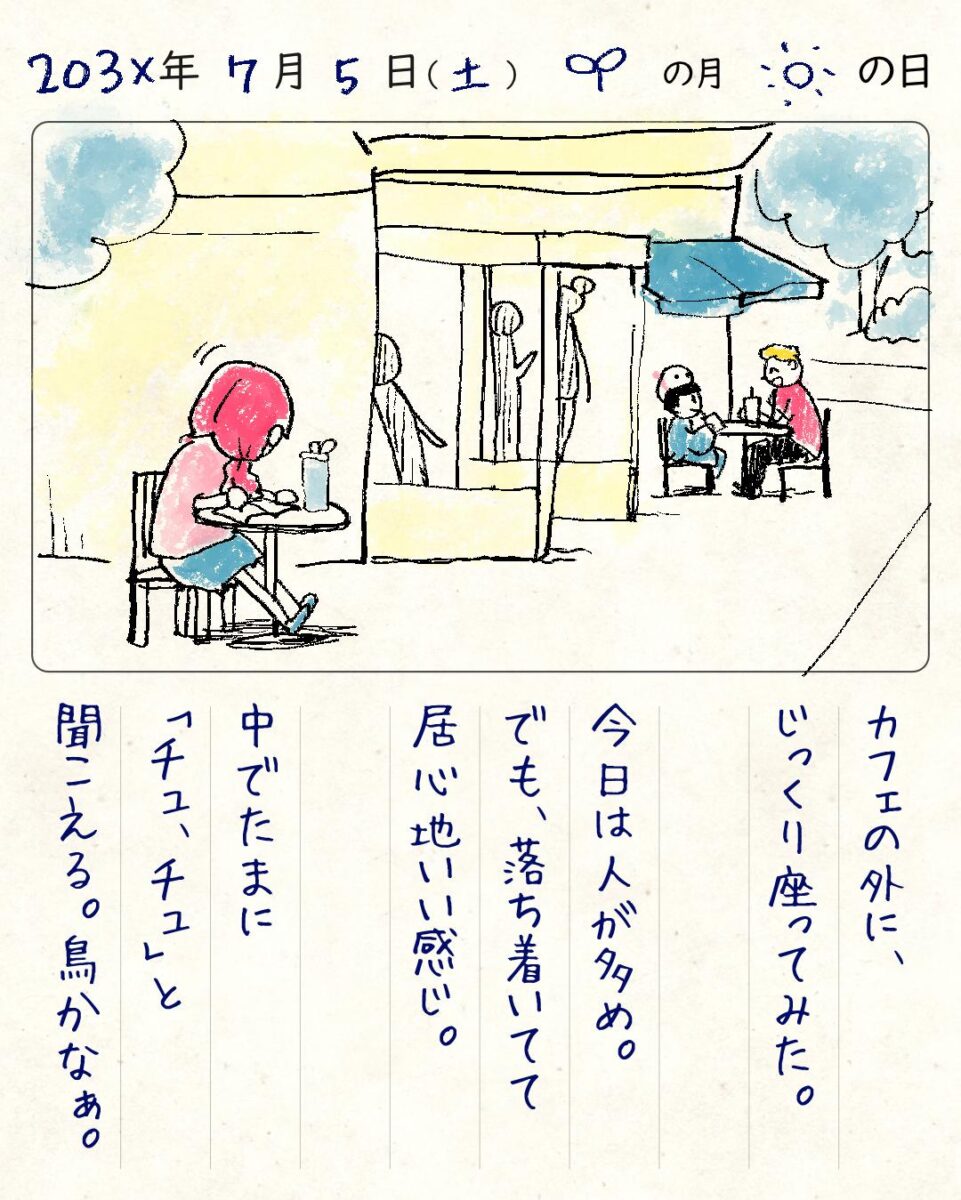 203x年 7月 5日(土) の月 の日
カフェの外に、
じっくり座ってみた。
今日は人が多め。
でも、落ち着いてて
居心地いい感じ。
中でたまに
「チュ、チュ」と
聞こえる。鳥かなぁ。